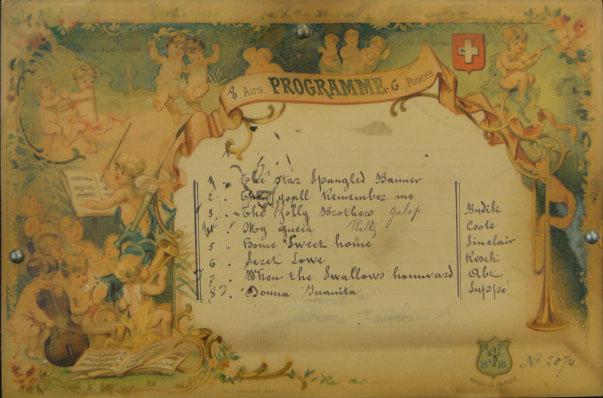 8 Airs. PROGRAMME 6 Pouces.
1. The Star Spangled Banner
2. Then you'll Remember me
3. The Jolly Brothers galop Budik
4. My queen Waltz Coote
5. Home Sweet home Sinclair
6. Secret Love Resch
7. When the Swallows homward Abt
8. Donna Juanita Suppé
No 2074
MARQUE DE FABRIQUE